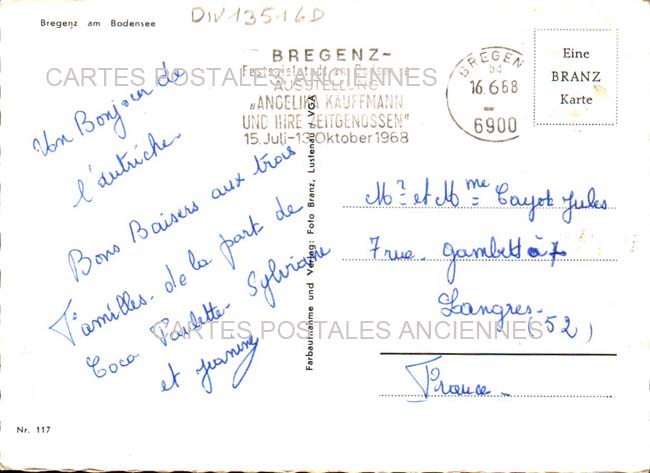 DIV13516D
Bregenz am Bodensee
BREGENZ-
Festspielstadt am Bodensee
AUSSTELLUNG
„ANGELIKA KAUFFMANN
UND IHRE ZEITGENOSSEN"
15. Juli-13. Oktober 1968
BREGENZ
bd
16.6.68
6900
Eine
BRANZ
Karte
CARTES POSTALES ANCIENNES
Un Bonjour de
l'Autriche.
Bons Baisers aux trois
Familles. de la part de
Coco Paulette. Sylviane
et Jeanine
Farbaufnahme und Verlag: Foto Branz, Lustenau / VGA
Mr et Mme Cayot Jules
7 rue. Gambetta
Langres.
(52)
France.
CARTES POSTALES ANCIENNES
Nr. 117